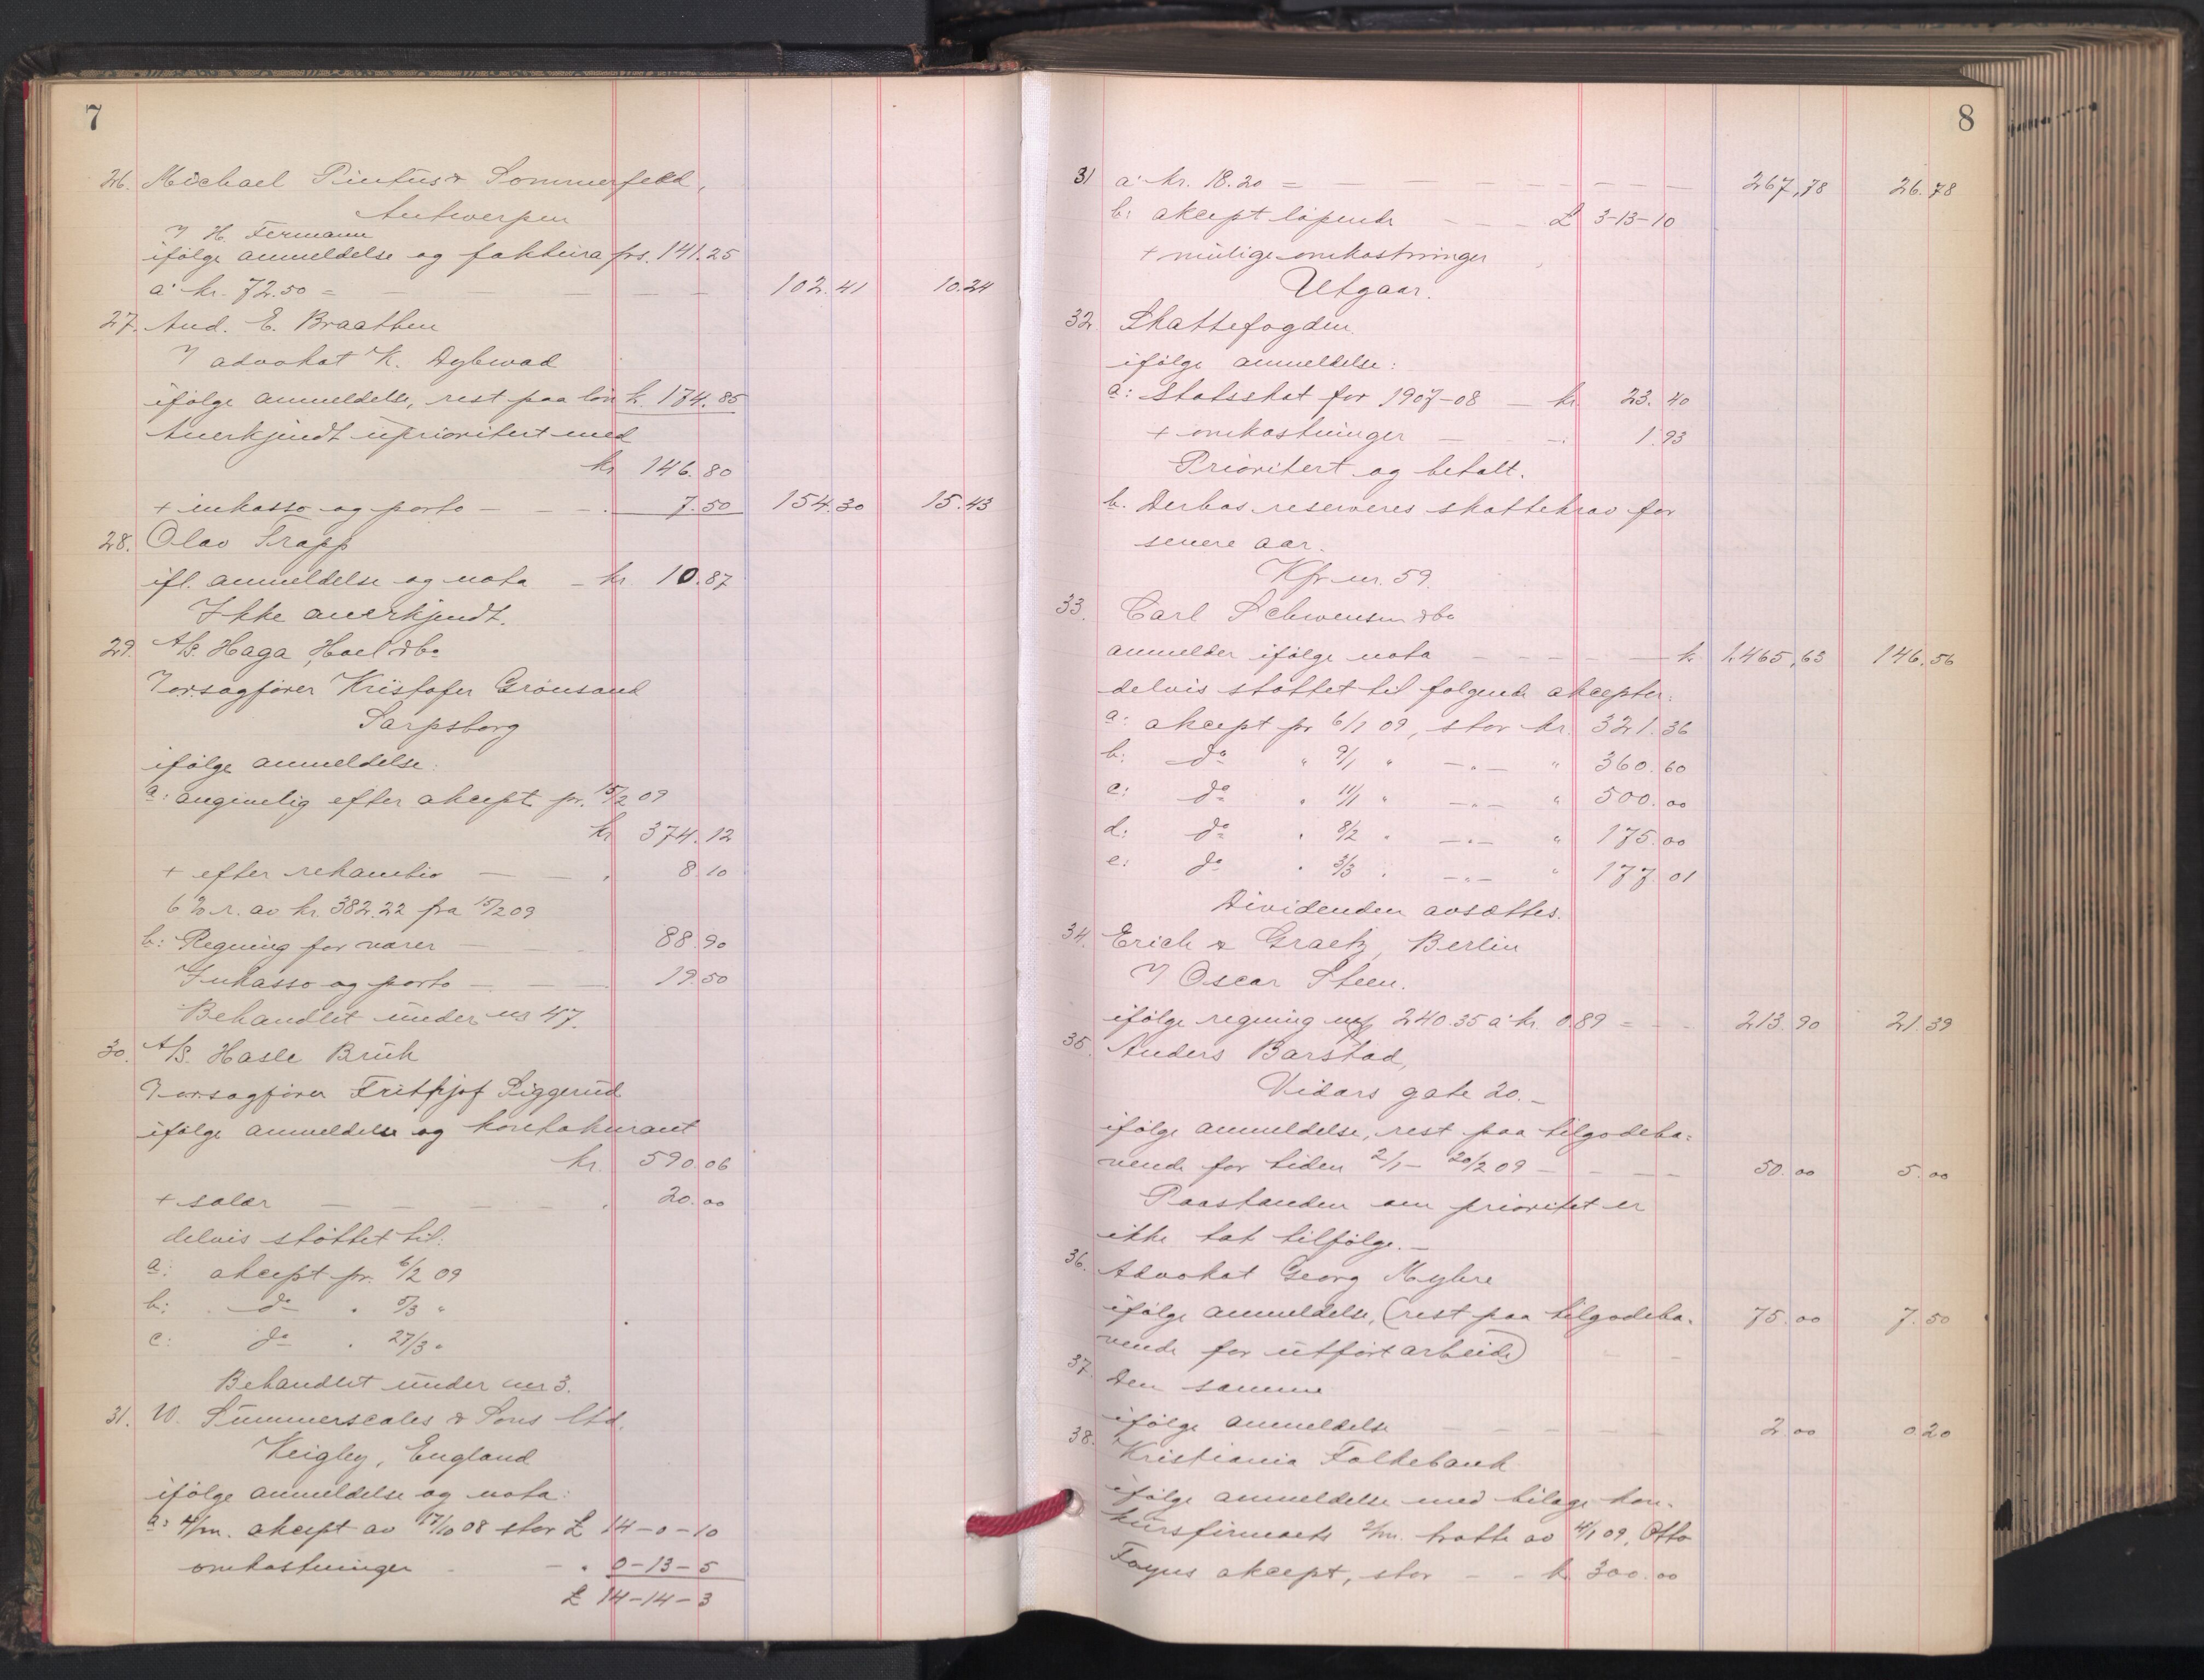 7
26. Michael Pintus & Sommerfeld,
Antwerpen
H. Fermann
ifölge anmeldelse og faktura frs. 141.25
a kr. 72.50 = — — — — — 102.41 10.24
27. And. E. Braathen
advokat K. Dybwad
ifölge anmeldelse, rest paa lön k. 174.85
Anerkjendt uprioritert med
kr. 146.80
+ inkasso og porto — — — 7.50 154.30 15.43
28. Olav Trapp
ifl. anmeldelse og nota — kr. 10.87
Ikke anerkjendt.
29. A/S. Haga, Hoel dbo
orsagförer Kristofer Grönsand
Sarpsborg
ifölge anmeldelse:
a: angivelig efter aksept pr. 15/2 09
kr 374.12
+ efter rekambio — — 8.10
6 % r. av kr. 382.22 fra 15/2 09
b: Regning for varer — — 88.90
Inkasso og porto — — 19.50
Behandlet under nr 47.
30. A/S. Hasle Bruk
orsagförer Frithjof Siggerud
ifölge anmeldelse og kontokurant
kr. 590.06
+ salær — — — — 20.00
delvis stöttet til:
a: aksept pr. 6/2 09
b: do " 5/3 "
c: do " 27/3 "
Behandlet under nr 3.
31. W. Summerscales & Sons Ltd,
Keigley, England
ifölge anmeldelse og nota:
a: 4/m. aksept av 17/10 08 stor £ 14-0-10
omkostninger — " 0-13-5
£ 14-14-3
8
31 a kr. 18.20 = — — — — — — 267,78 26.78
b: aksept löpende — — — £ 3-13-10
+ mulige omkostninger
Utgaar.
32. Skattefogden.
ifölge anmeldelse:
a: Statsskat for 1907-08 — kr. 23.40
+ omkostninger — — 1.93
Prioritert og betalt.
b. Derhos reserveres skattekrav for
senere aar.
Kfr nr. 59.
33. Carl Schwensen dbo
anmelder ifölge nota — — — — k 1.465,63 146,56
delvis stöttet til fölgende aksepter:
a: aksept pr 6/1 09, stor kr. 321.36
b: do " 9/1 " —"— " 360.60
c: do " 11/1 " —"— " 500.00
d: do " 8/2 " —"— " 175.00
e: do " 3/3 " —"— " 177.01
Dividenden avsættes.
34. Erich & Graetz, Berlin
Oscar Steen.
ifölge regning 240.35 a kr. 0.89 = — — 213.90 21.39
35. Anders Barstad,
Vidars gate 20.—
ifölge anmeldelse, rest paa tilgodeha-
vende for tiden 2/1 — 20/2 09 — — — 50.00 5.00
Paastanden om prioritet er
ikke tat tilfölge.—
36. Advokat Georg Myhre
ifölge anmeldelse, (rest paa tilgodeha- 75.00 7.50
vende for utfört arbeide)
37. Den samme
ifölge anmeldelse — — — — — 2.00 0.20
38. Kristiania Folkebank
ifölge anmeldelse med bilage kon-
kursfirmaets 2/m. tratte av 4/1 09, Otto
Fogns aksept, stor — — k. 300.00